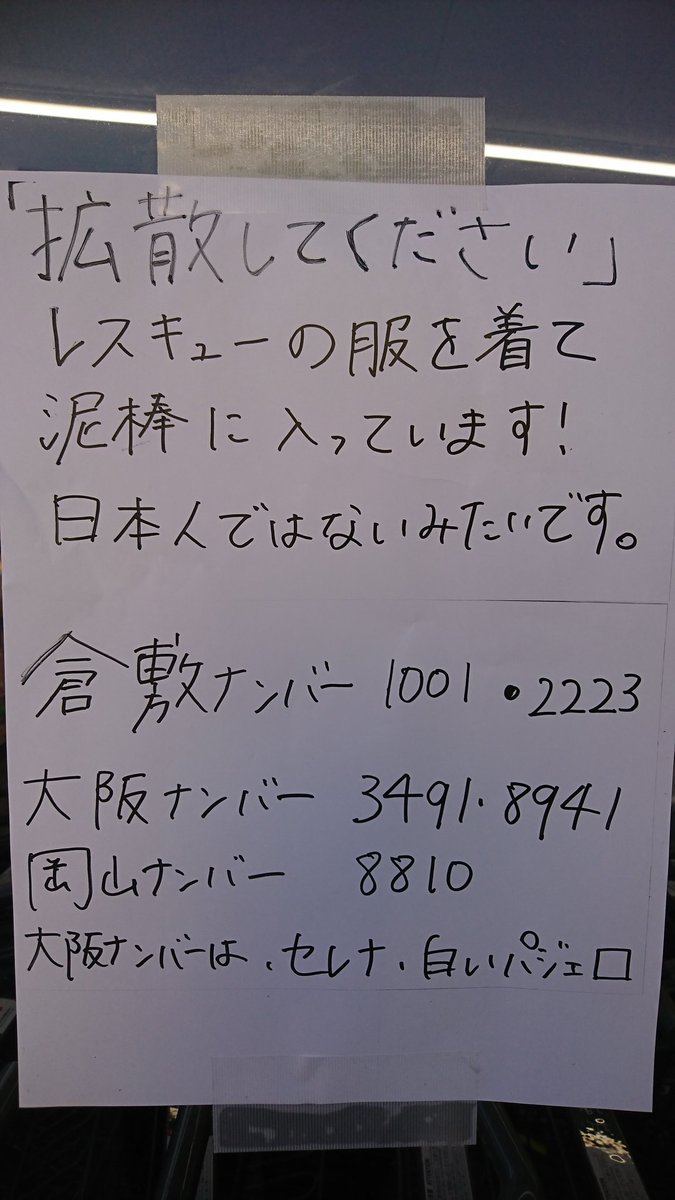 「拡散してください」
レスキューの服を着て
泥棒に入っています!
日本人ではないみたいです。
倉敷ナンバー 1001・2223
大阪ナンバー 3491・8941
岡山ナンバー 8810
大阪ナンバーは、セレナ、白いパジェロ